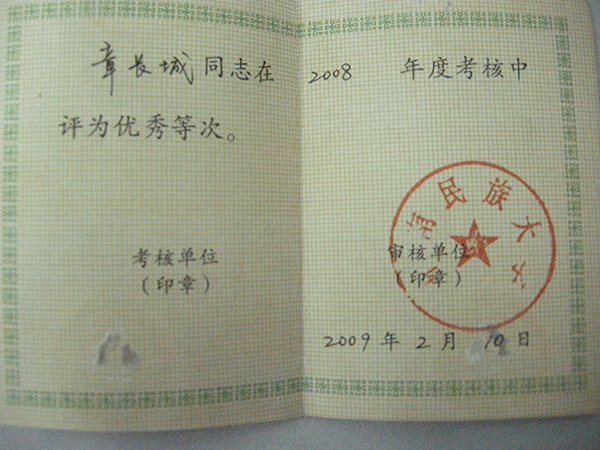 章长城同志在 2008 年度考核中
评为优秀等次。
考核单位
（印章）
审核单位
（印章）
南民族大
2009年2月10日